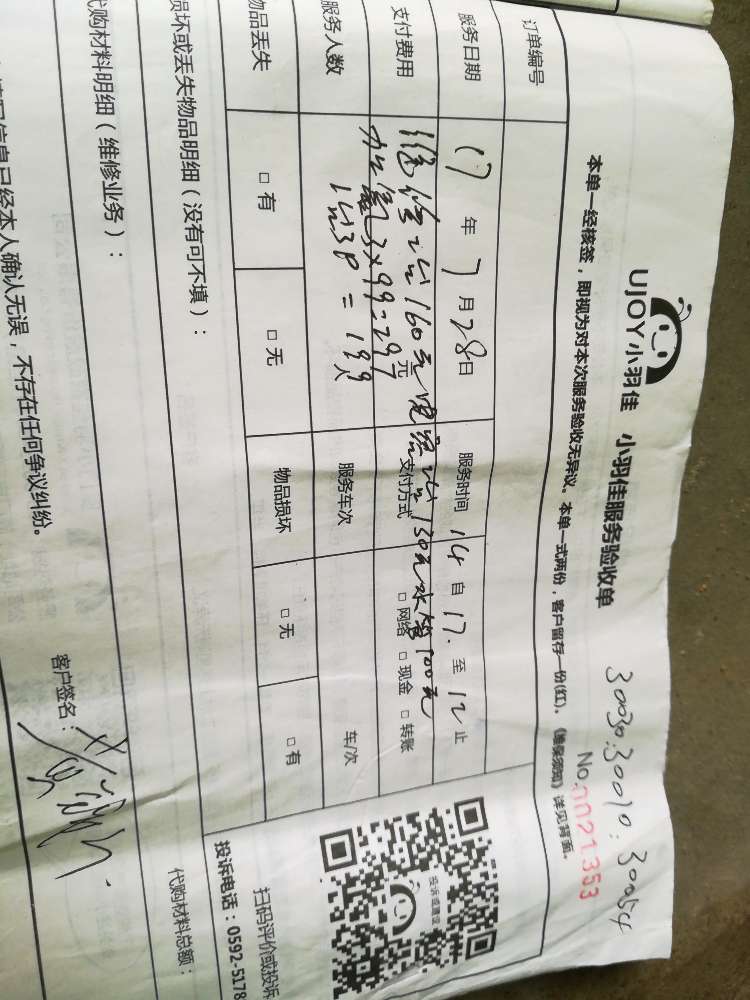 30030.30010.30054
UJOY小羽佳 小羽佳服务验收单
No.0021353
本单一经核签，即视为对本次服务验收无异议。本单一式两份，客户留存一份(红)。《维保须知》详见背面。
订单编号
服务日期 17年7月28日 服务时间 14自17.至12止
支付费用 维修 160元 130元水管900元
支付方式 □网络 □现金 □转账
加氟3×99=297元
服务人数 3P=199人 服务车次 车/次
物品丢失 □有 □无 物品损坏 □无 □有
损坏或丢失物品明细（没有可不填）：
代购材料明细（维修业务）： 代购材料总额：
投诉或建议
扫码评价或投诉
投诉电话：0592-5178
信息已经本人确认无误，不存在任何争议纠纷。
客户签名：